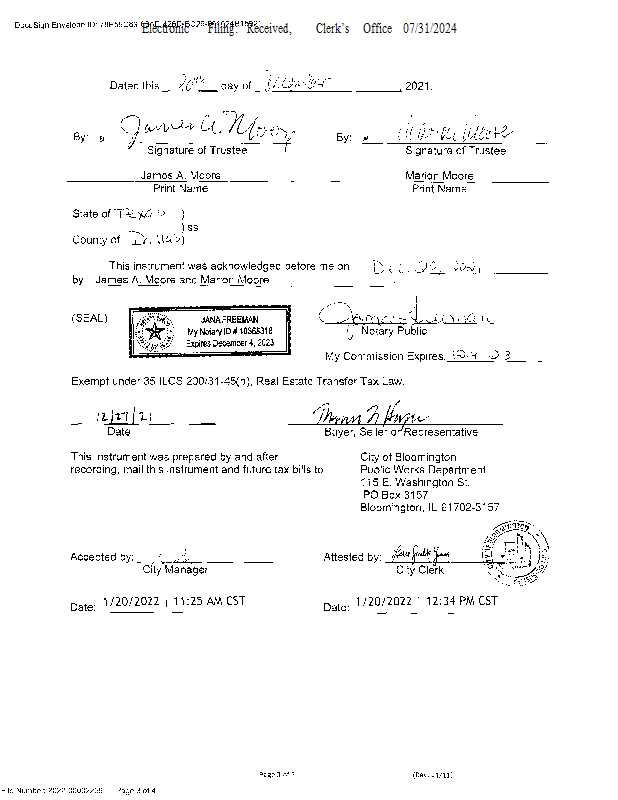 DocuSign Envelope ID:
Electronic Filing: Received, Clerk's Office 07/31/2024
Dated this 20th day of December, 2021.
By: James A. Moore By: Marion Moore
Signature of Trustee Signature of Trustee
James A. Moore Marion Moore
Print Name Print Name
State of Texas )
) ss
County of Dallas)
This instrument was acknowledged before me on Dec. 20, 2021
by James A. Moore and Marion Moore
(SEAL)
JANA FREEMAN
My Notary ID #
Expires December 4, 2023
Notary Public
My Commission Expires: 12-4-23
Exempt under 35 ILCS 200/31-45(b), Real Estate Transfer Tax Law.
12/27/21
Date Buyer, Seller or Representative
This instrument was prepared by and after
recording, mail this instrument and future tax bills to
City of Bloomington
Public Works Department
115 E. Washington St.
PO Box 3157
Bloomington, IL 61702-3157
Accepted by: Attested by:
City Manager City Clerk
Date: 1/20/2022 | 11:25 AM CST Date: 1/20/2022 | 12:34 PM CST
Page 3 of
File Number: Page 3 of 4